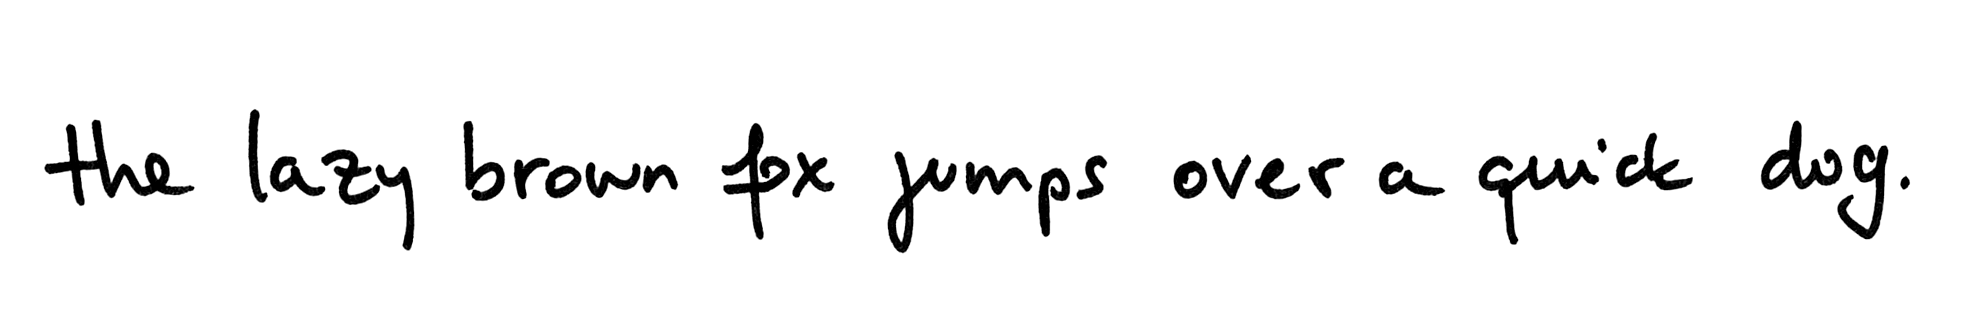 the lazy brown fox jumps over a quick dog.